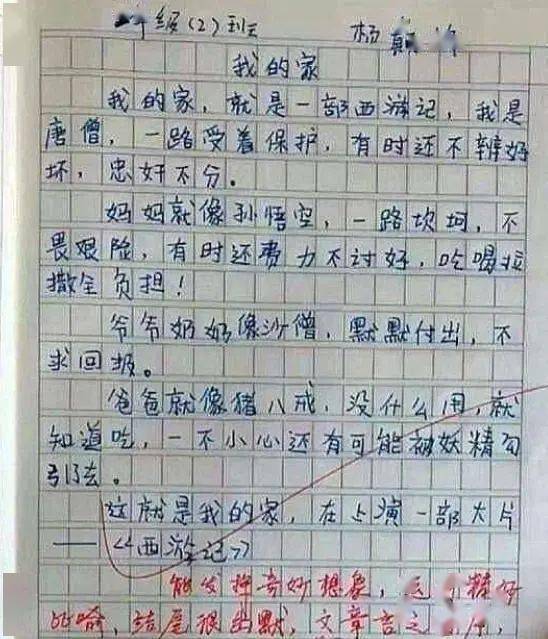 年级(2)班 杨
我的家
我的家,就是一部西游记,我是
唐僧,一路受着保护,有时还不辨好
坏,忠奸不分。
妈妈就像孙悟空,一路坎坷,不
畏艰险,有时还费力不讨好,吃喝拉
撒全负担!
爷爷奶奶像沙僧,默默付出,不
求回报。
爸爸就像猪八戒,没什么用,就
知道吃,一不小心还有可能被妖精勾
引去。
这就是我的家,在上演一部大片
——《西游记》
能发挥奇妙想象,精仔
比喻,结尾很幽默,文章言之